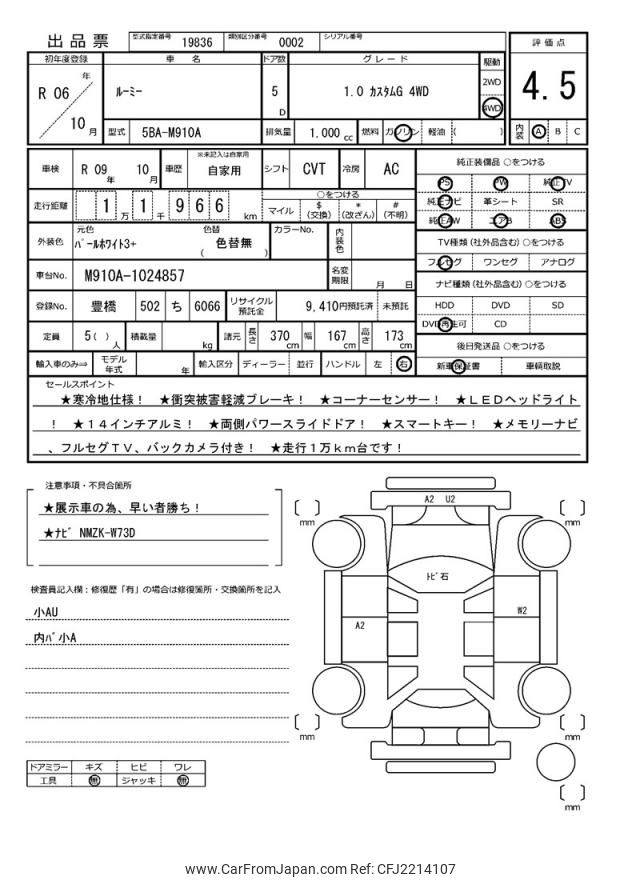 出品票 型式指定番号 19836 類別区分番号 0002 シリアル番号
評価点
4.5
内装 A B C
初年度登録 車名 ドア数 グレード 駆動
R 06 年 10 月
ルーミー 5 D 1.0 カスタムG 4WD
2WD
4WD
型式 5BA-M910A 排気量 1.000 cc 燃料 ガソリン 軽油 ( )
車検 R 09 年 10 月 車歴 ※未記入は自家用 自家用 シフト CVT 冷房 AC
走行距離 1 万 1 千 9 6 6 km
○をつける
マイル $ (交換) * (改ざん) # (不明)
外装色 元色 パールホワイト3+ 色替 ( 色替無 ) カラーNo. 内装色
車台No. M910A-1024857 名変期限 月 日
登録No. 豊橋 502 ち 6066 リサイクル預託金 9,410円預託済 未預託
定員 5( ) 人 積載量 kg 諸元 長さ 370 cm 幅 167 cm 高さ 173 cm
輸入車のみ⇒ モデル年式 年 輸入区分 ディーラー 並行 ハンドル 左 右
純正装備品 ○をつける
PS PW 純正TV
純正ナビ 革シート SR
純正AW エアB ABS
TV種類 (社外品含む) ○をつける
フルセグ ワンセグ アナログ
ナビ種類 (社外品含む) ○をつける
HDD DVD SD
DVD再生可 CD
後日発送品 ○をつける
新車保証書 車輌取説
セールスポイント
★寒冷地仕様! ★衝突被害軽減ブレーキ! ★コーナーセンサー! ★LEDヘッドライト
! ★14インチアルミ! ★両側パワースライドドア! ★スマートキー! ★メモリーナビ
、フルセグTV、バックカメラ付き! ★走行1万km台です!
注意事項・不具合箇所
★展示車の為、早い者勝ち!
★ナビ NMZK-W73D
検査員記入欄:修復歴「有」の場合は修復箇所・交換箇所を記入
小AU
内バ小A
ドアミラー キズ ヒビ ワレ
工具 無 ジャッキ 無
A2 U2
mm mm
トビ石
W2
A2
mm mm
mm
www.CarFromJapan.com Ref: CFJ2214107